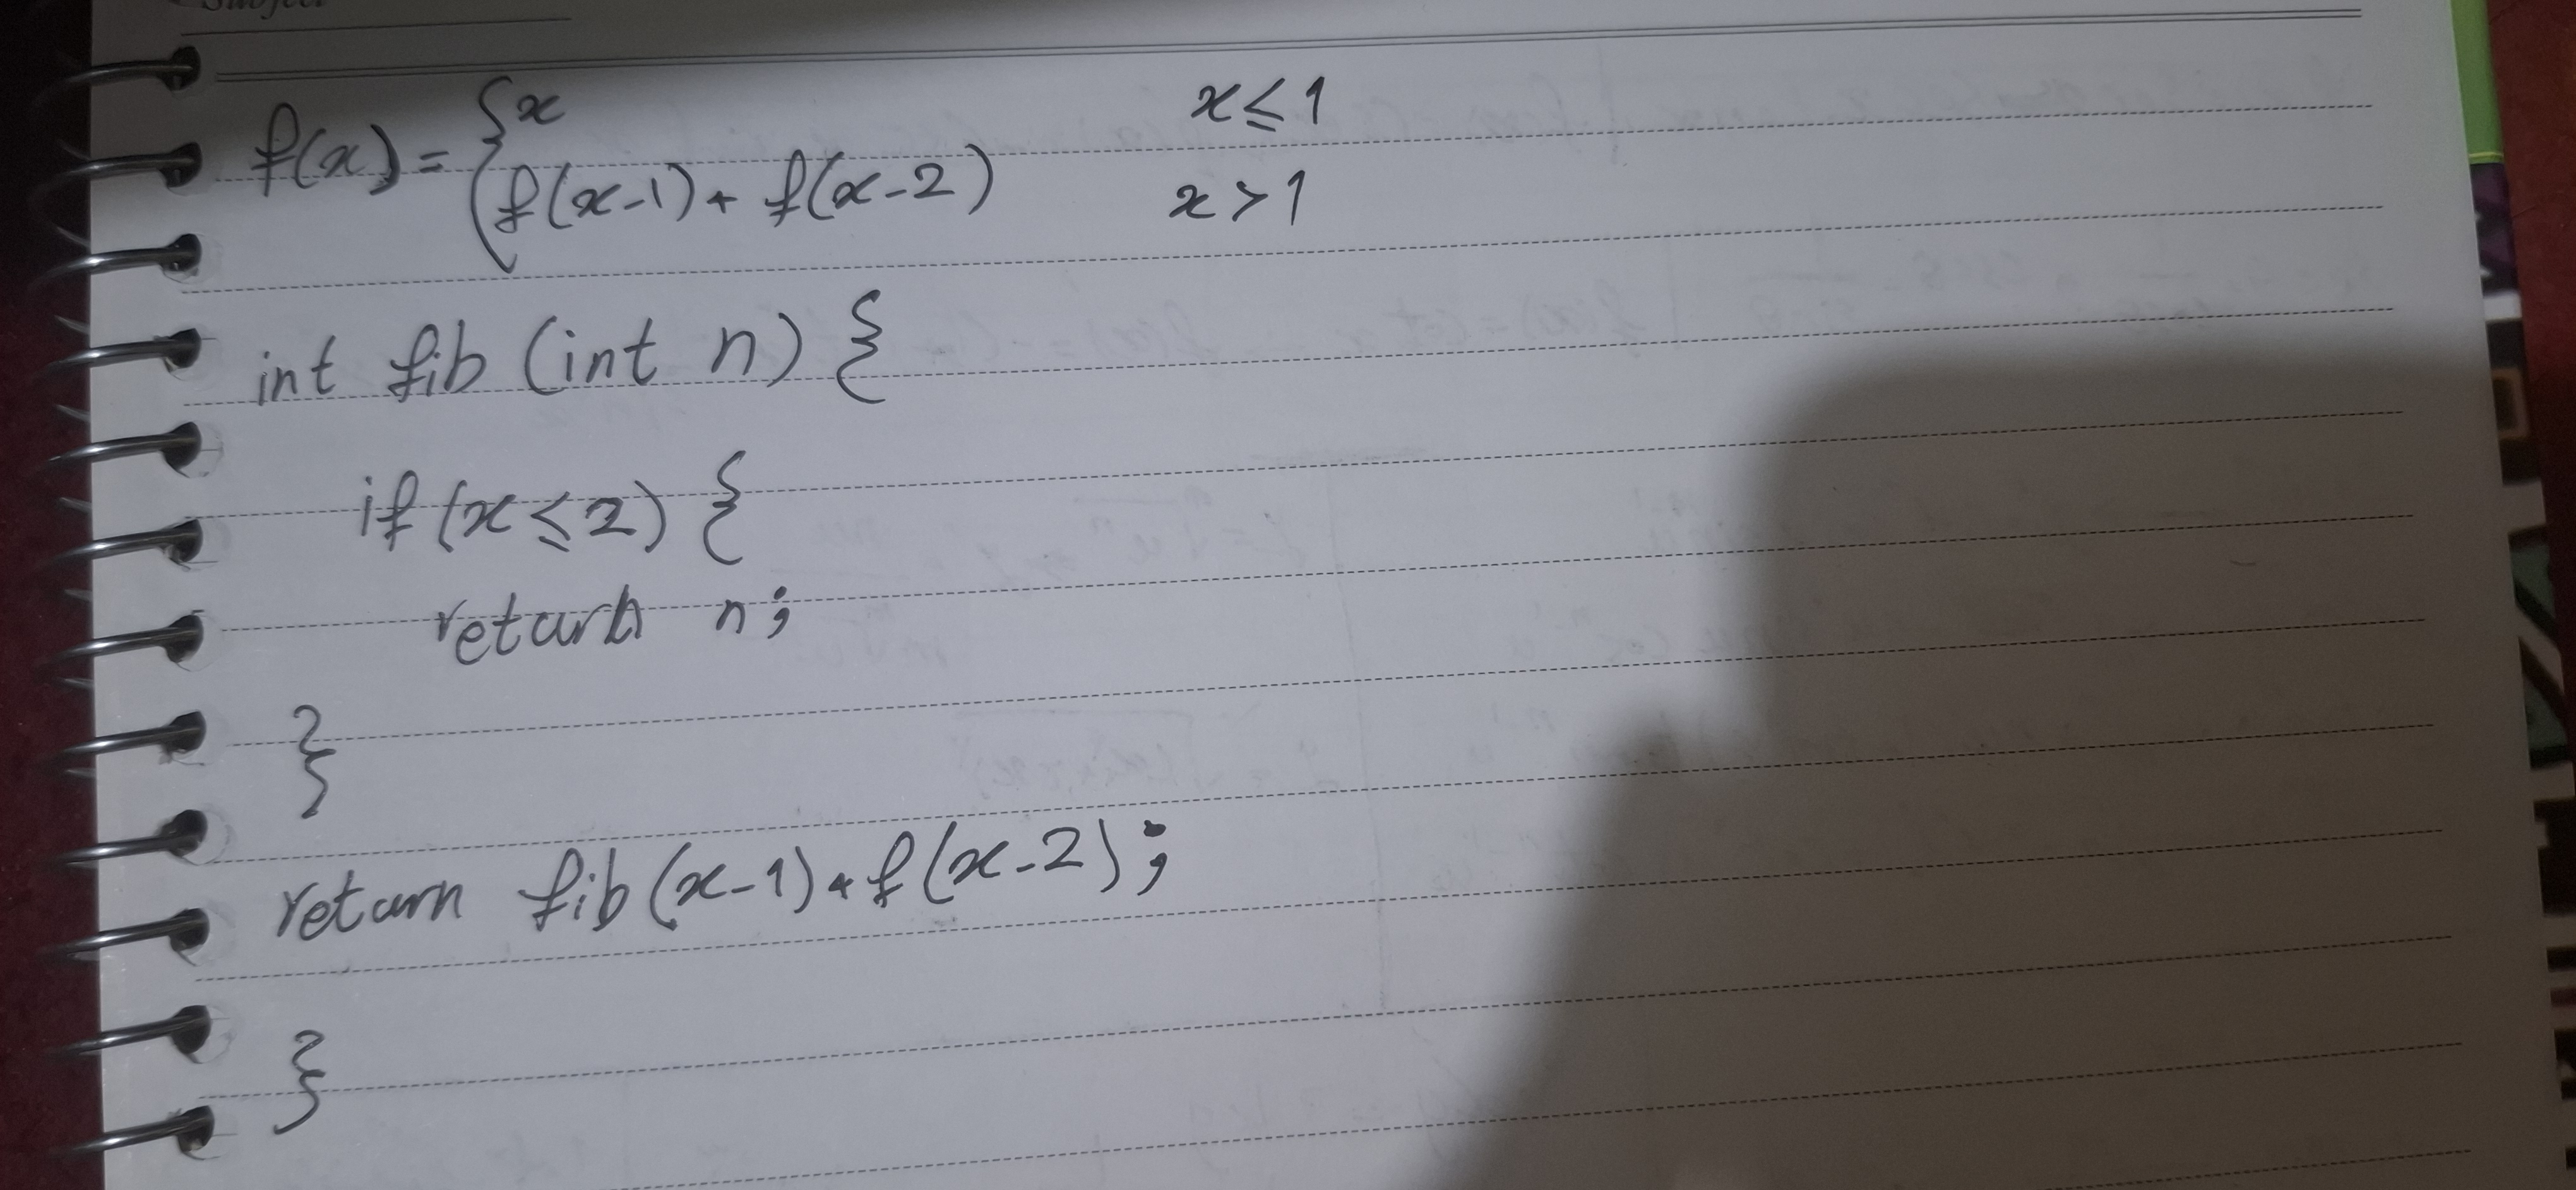 f(x) = { x x ≤ 1
f(x-1) + f(x-2) x > 1
int fib (int n) {
if (x ≤ 2) {
return n;
}
return fib(x-1) + f(x-2);
}